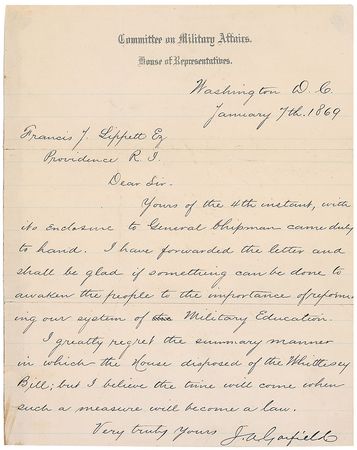 Committee on Military Affairs.
House of Representatives.
Washington D. C.
January 7th. 1869
Francis J. Lippett Ez
Providence R. I.
Dear Sir.
Yours of the 4th instant, with
its enclosure to General Chipman came duly
to hand. I have forwarded the letter and
shall be glad if something can be done to
awaken the people to the importance of reform
ing our system of Military Education.
I greatly regret the summary manner
in which the House disposed of the Whittlesey
Bill; but I believe the time will come when
such a measure will become a law.
Very truly Yours J. A. Garfield